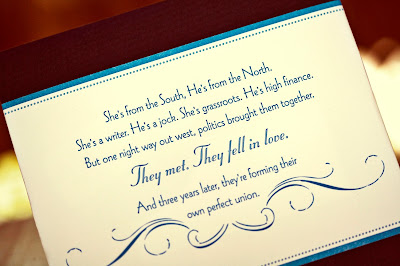 She's from the South, He's from the North.
She's a writer. He's a jock. She's grassroots. He's high finance.
But one night way out west, politics brought them together.
They met. They fell in love.
And three years later, they're forming their
own perfect union.